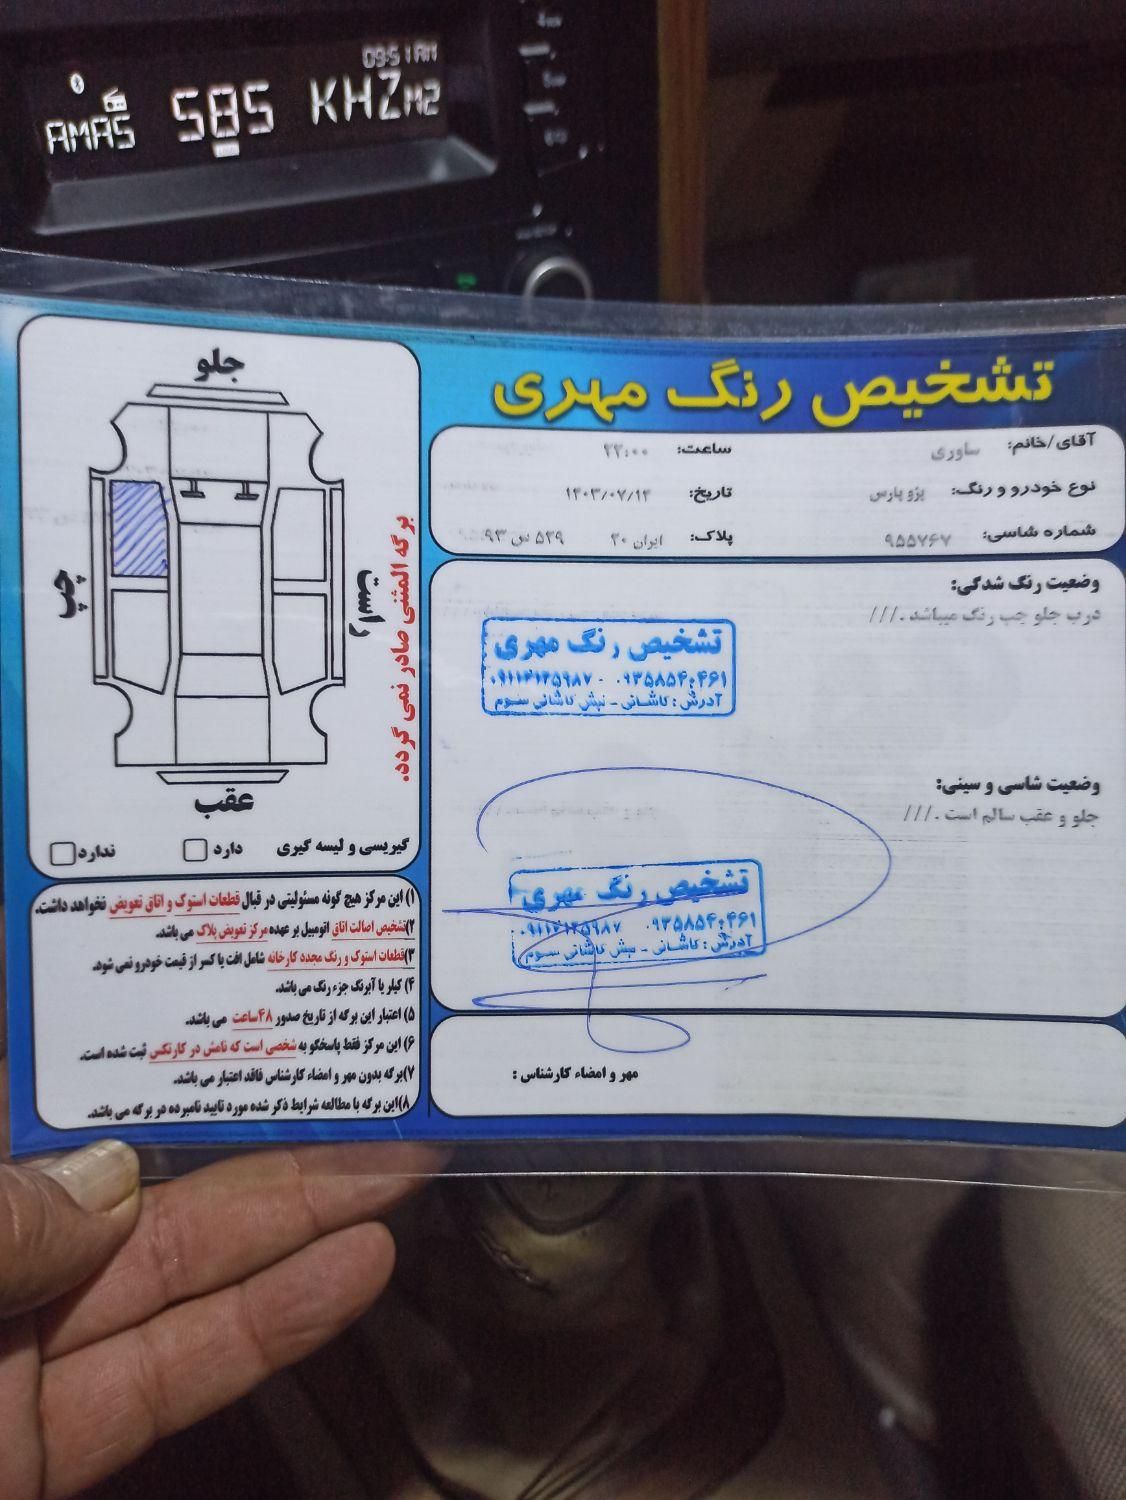 09:51AM
AMAS 585 KHZ M2
تشخیص رنگ مهری
آقای/خانم: ساوری ساعت: ۲۲:۰۰
نوع خودرو و رنگ: پژو پارس تاریخ: ۱۴۰۳/۰۷/۱۴
شماره شاسی: ۹۵۵۷۶۷ پلاک: ایران ۲۰ ۵۳۹ س ۹۳
وضعیت رنگ شدگی:
درب جلو چپ رنگ میباشد .///
تشخیص رنگ مهری
۰۹۱۱۲۱۲۵۹۸۷ - ۰۹۳۵۸۵۴۰۴۶۱
آدرش : کاشانی - نبش کاشانی سوم
وضعیت شاسی و سینی:
جلو و عقب سالم است .///
تشخیص رنگ مهری
۰۹۱۱۲۱۲۵۹۸۷ ۰۹۳۵۸۵۴۰۴۶۱
آدرش : کاشانی - نبش کاشانی سوم
مهر و امضاء کارشناس :
جلو
چپ
راست
عقب
برگه المثنی صادر نمی گردد.
گیریسی و لیسه گیری دارد ندارد
۱) این مرکز هیچ گونه مسئولیتی در قبال قطعات استوک و اتاق تعویض نخواهد داشت.
۲)تشخیص اصالت اتاق اتومبیل بر عهده مرکز تعویض پلاک می باشد.
۳)قطعات استوک و رنگ مجدد کارخانه شامل افت یا کسر از قیمت خودرو نمی شود.
۴) کیلر یا آبرنگ جزء رنگ می باشد.
۵) اعتبار این برگه از تاریخ صدور ۴۸ساعت می باشد.
۶) این مرکز فقط پاسخگو به شخصی است که نامش در کارتکس ثبت شده است.
۷)برگه بدون مهر و امضاء کارشناس فاقد اعتبار می باشد.
۸)این برگه با مطالعه شرایط ذکر شده مورد تایید نامبرده در برگه می باشد.